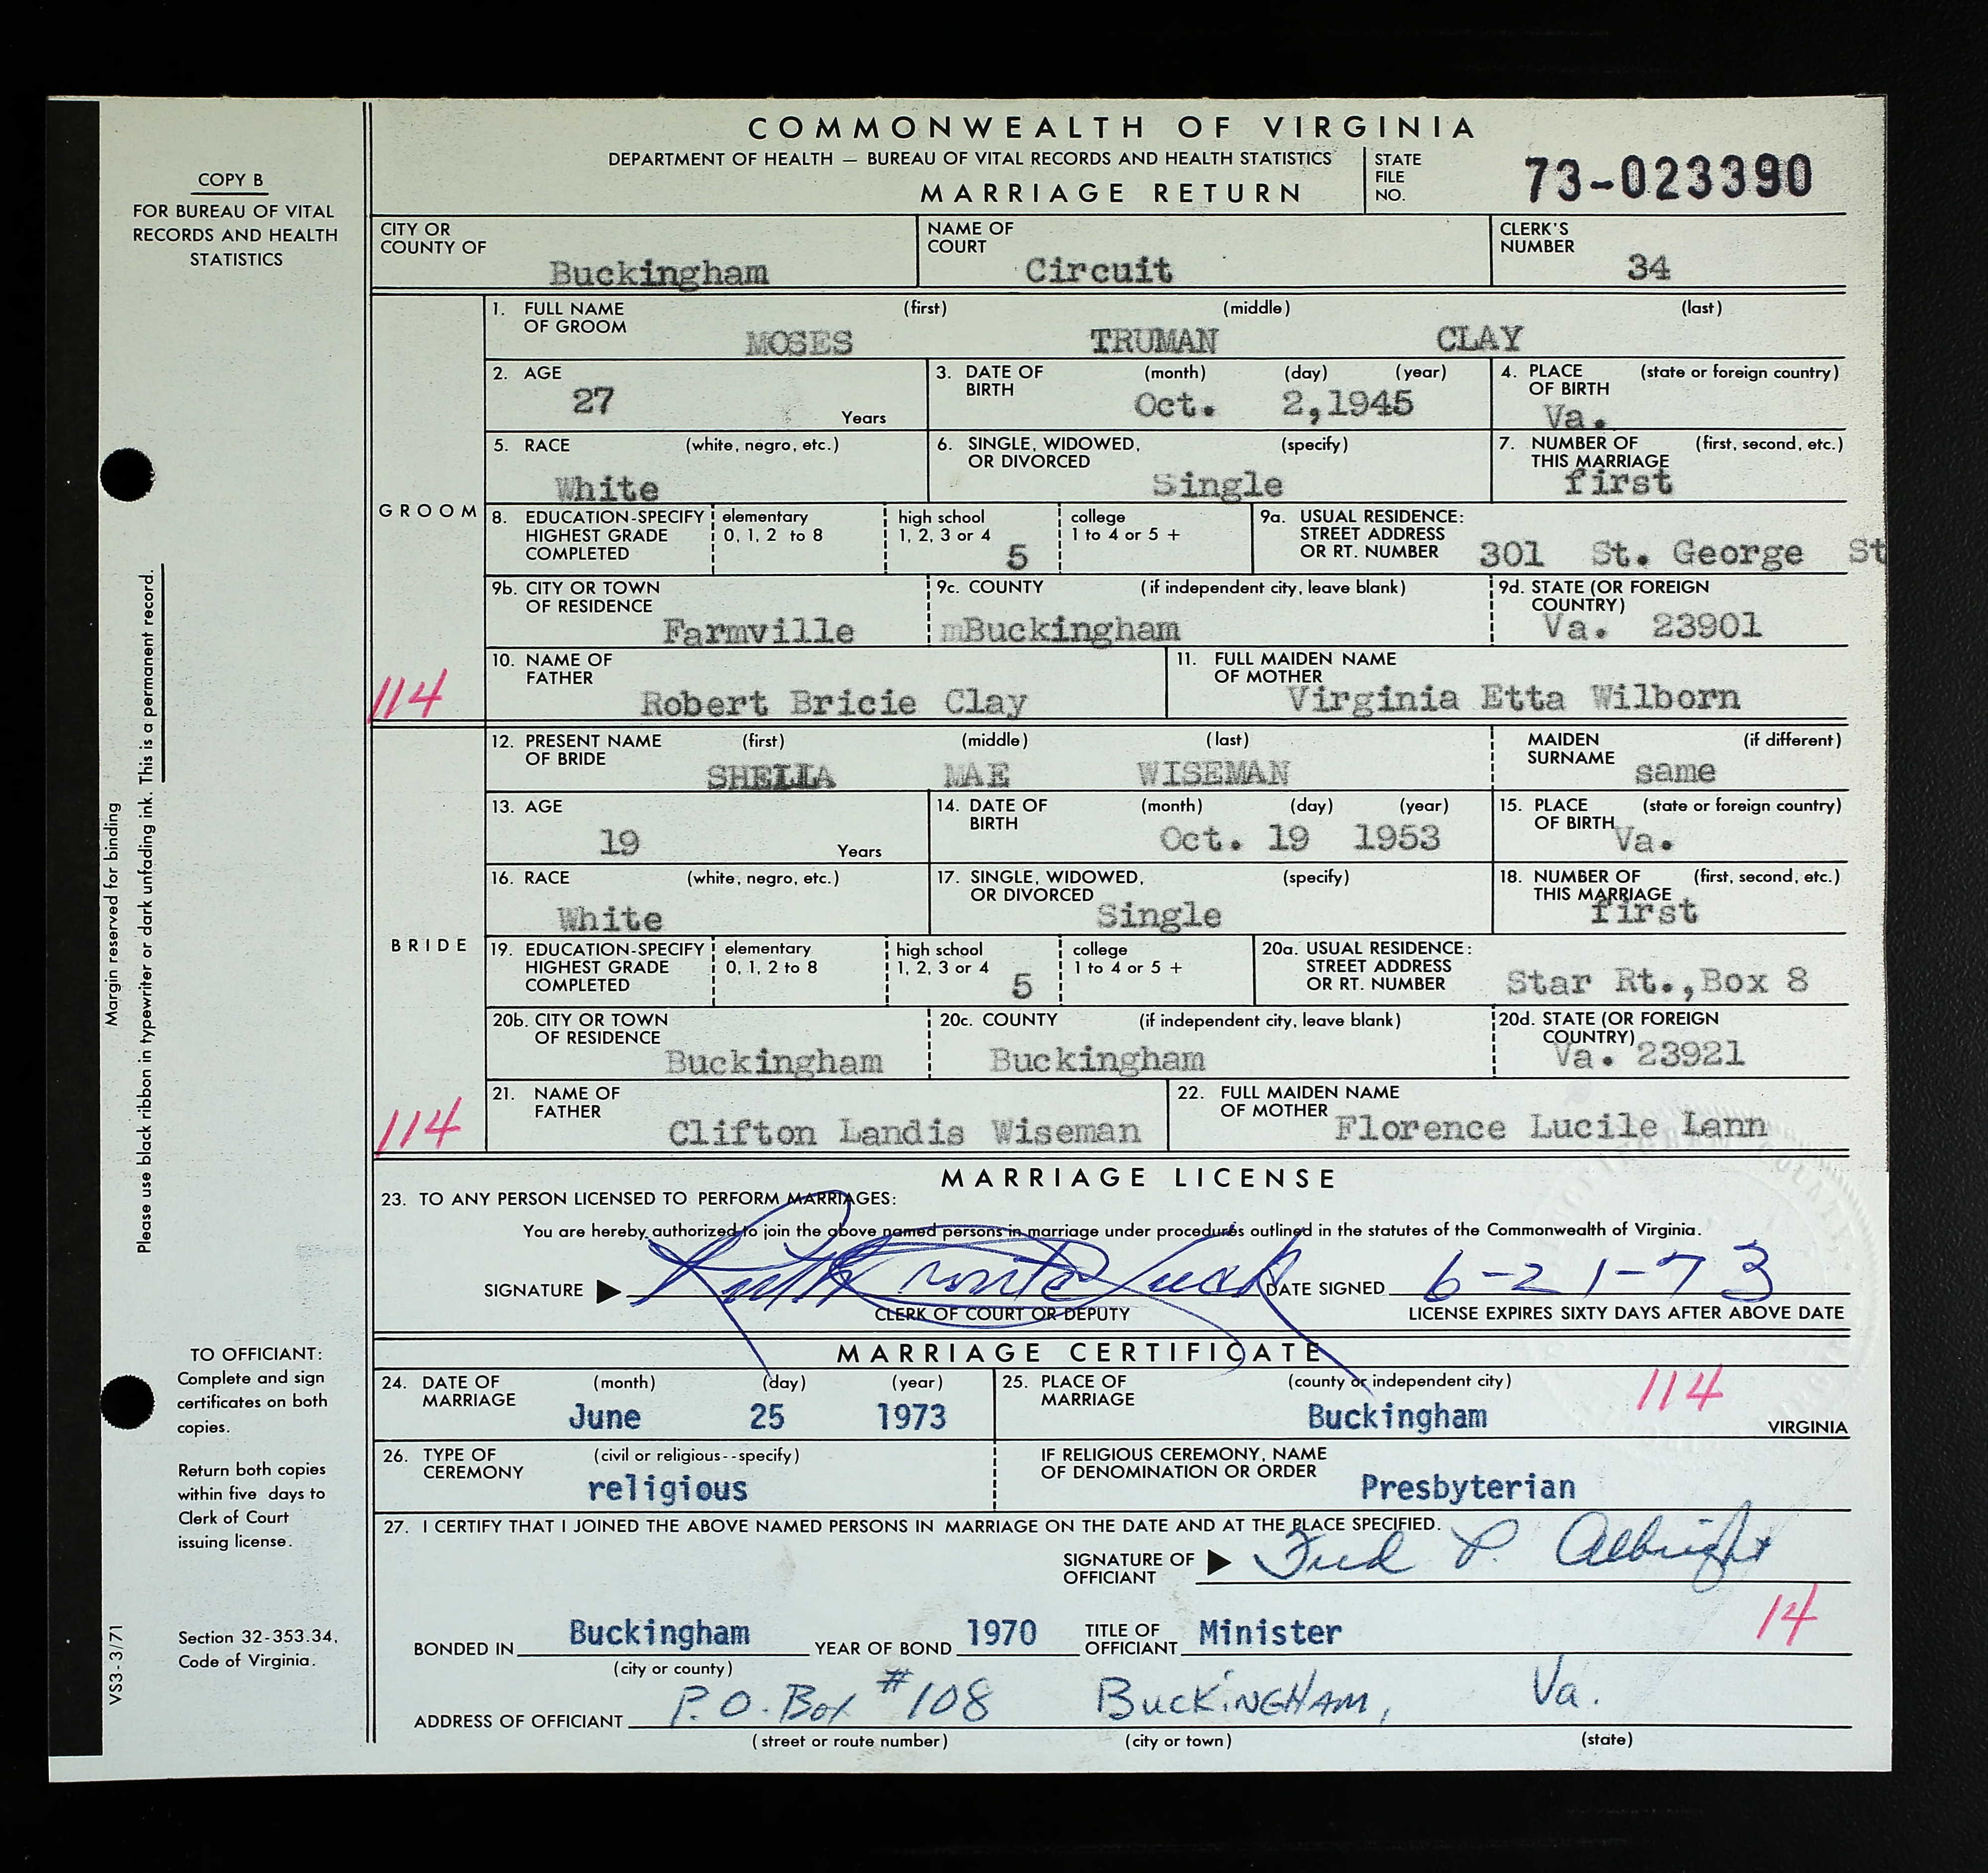 COMMONWEALTH OF VIRGINIA
DEPARTMENT OF HEALTH — BUREAU OF VITAL RECORDS AND HEALTH STATISTICS
MARRIAGE RETURN
STATE FILE NO. 73-023390
COPY B
FOR BUREAU OF VITAL
RECORDS AND HEALTH
STATISTICS
CITY OR COUNTY OF Buckingham
NAME OF COURT Circuit
CLERK'S NUMBER 34
GROOM
1. FULL NAME OF GROOM (first) (middle) (last)
MOSES TRUMAN CLAY
2. AGE 27 Years
3. DATE OF BIRTH (month) (day) (year) Oct. 2,1945
4. PLACE OF BIRTH (state or foreign country) Va.
5. RACE (white, negro, etc.) White
6. SINGLE, WIDOWED, OR DIVORCED (specify) Single
7. NUMBER OF THIS MARRIAGE (first, second, etc.) first
8. EDUCATION-SPECIFY HIGHEST GRADE COMPLETED
elementary 0, 1, 2 to 8
high school 1, 2, 3 or 4 5
college 1 to 4 or 5 +
9a. USUAL RESIDENCE: STREET ADDRESS OR RT. NUMBER 301 St. George St
9b. CITY OR TOWN OF RESIDENCE Farmville
9c. COUNTY (if independent city, leave blank) mBuckingham
9d. STATE (OR FOREIGN COUNTRY) Va. 23901
10. NAME OF FATHER Robert Bricie Clay
11. FULL MAIDEN NAME OF MOTHER Virginia Etta Wilborn
114
BRIDE
12. PRESENT NAME OF BRIDE (first) (middle) (last)
SHEILA MAE WISEMAN
MAIDEN SURNAME (if different) same
13. AGE 19 Years
14. DATE OF BIRTH (month) (day) (year) Oct. 19 1953
15. PLACE OF BIRTH (state or foreign country) Va.
16. RACE (white, negro, etc.) White
17. SINGLE, WIDOWED, OR DIVORCED (specify) Single
18. NUMBER OF THIS MARRIAGE (first, second, etc.) first
19. EDUCATION-SPECIFY HIGHEST GRADE COMPLETED
elementary 0, 1, 2 to 8
high school 1, 2, 3 or 4 5
college 1 to 4 or 5 +
20a. USUAL RESIDENCE: STREET ADDRESS OR RT. NUMBER Star Rt.,Box 8
20b. CITY OR TOWN OF RESIDENCE Buckingham
20c. COUNTY (if independent city, leave blank) Buckingham
20d. STATE (OR FOREIGN COUNTRY) Va. 23921
21. NAME OF FATHER Clifton Landis Wiseman
22. FULL MAIDEN NAME OF MOTHER Florence Lucile Lann
114
MARRIAGE LICENSE
23. TO ANY PERSON LICENSED TO PERFORM MARRIAGES:
You are hereby authorized to join the above named persons in marriage under procedures outlined in the statutes of the Commonwealth of Virginia.
SIGNATURE
CLERK OF COURT OR DEPUTY
DATE SIGNED 6-21-73
LICENSE EXPIRES SIXTY DAYS AFTER ABOVE DATE
MARRIAGE CERTIFICATE
24. DATE OF MARRIAGE (month) (day) (year) June 25 1973
25. PLACE OF MARRIAGE (county or independent city) Buckingham VIRGINIA
114
26. TYPE OF CEREMONY (civil or religious--specify) religious
IF RELIGIOUS CEREMONY, NAME OF DENOMINATION OR ORDER Presbyterian
27. I CERTIFY THAT I JOINED THE ABOVE NAMED PERSONS IN MARRIAGE ON THE DATE AND AT THE PLACE SPECIFIED.
SIGNATURE OF OFFICIANT Fred P. Albright
14
BONDED IN Buckingham (city or county)
YEAR OF BOND 1970
TITLE OF OFFICIANT Minister
ADDRESS OF OFFICIANT P.O. Box #108 Buckingham, Va.
(street or route number) (city or town) (state)
Margin reserved for binding
Please use black ribbon in typewriter or dark unfading ink. This is a permanent record.
TO OFFICIANT:
Complete and sign
certificates on both
copies.
Return both copies
within five days to
Clerk of Court
issuing license.
Section 32-353.34,
Code of Virginia.
VS3-3/71